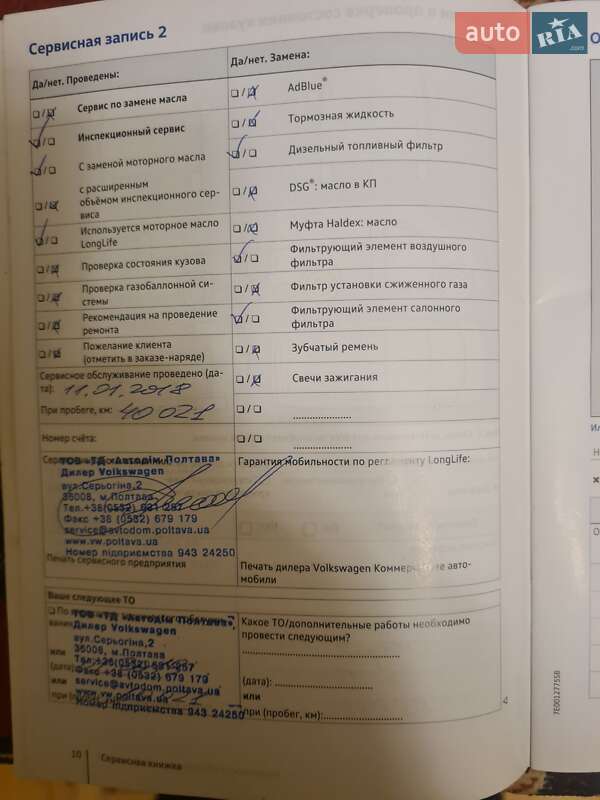 auto RIA.com
Сервисная запись 2
Да/нет. Проведены:
Да/нет. Замена:
Сервис по замене масла
Инспекционный сервис
С заменой моторного масла
с расширенным
объёмом инспекционного сер-
виса
Используется моторное масло
LongLife
Проверка состояния кузова
Проверка газобаллонной си-
стемы
Рекомендация на проведение
ремонта
Пожелание клиента
(отметить в заказе-наряде)
Сервисное обслуживание проведено (да-
та): 11.01.2018
При пробеге, км: 40 021
Номер счёта:
AdBlue®
Тормозная жидкость
Дизельный топливный фильтр
DSG®: масло в КП
Муфта Haldex: масло
Фильтрующий элемент воздушного
фильтра
Фильтр установки сжиженного газа
Фильтрующий элемент салонного
фильтра
Зубчатый ремень
Свечи зажигания
....................
....................
ТОВ «ТД «Автодім Полтава»
Дилер Volkswagen
вул.Серьогіна,2
36008, м.Полтава
Тел.+38(0532)
Факс +38 (0532) 679 179
service@avtodom.poltava.ua
www.vw.poltava.ua
Номер підприємства 943 24250
Печать сервисного предприятия
Гарантия мобильности по регламенту LongLife:
Печать дилера Volkswagen Коммерческие авто-
мобили
Ваше следующее ТО
ТОВ «ТД «Автодім Полтава»
Дилер Volkswagen
вул.Серьогіна,2
36008, м.Полтава
Факс +38 (0532) 679 179
или service@avtodom.poltava.ua
www.vw.poltava.ua
Номер підприємства 943 24250
Какое ТО/дополнительные работы необходимо
провести следующим?
(дата):
или
при (пробег, км):
7E0012775SB
10 Сервисная книжка